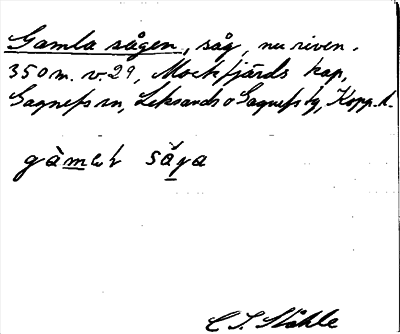 Gamla sågen, såg, nu riven.
350 m. v. 29, Mockfjärds kap,
Gagnefs sn, Leksands o Gagnefs tg, Kopp. l.
såga
C I. Ståhle